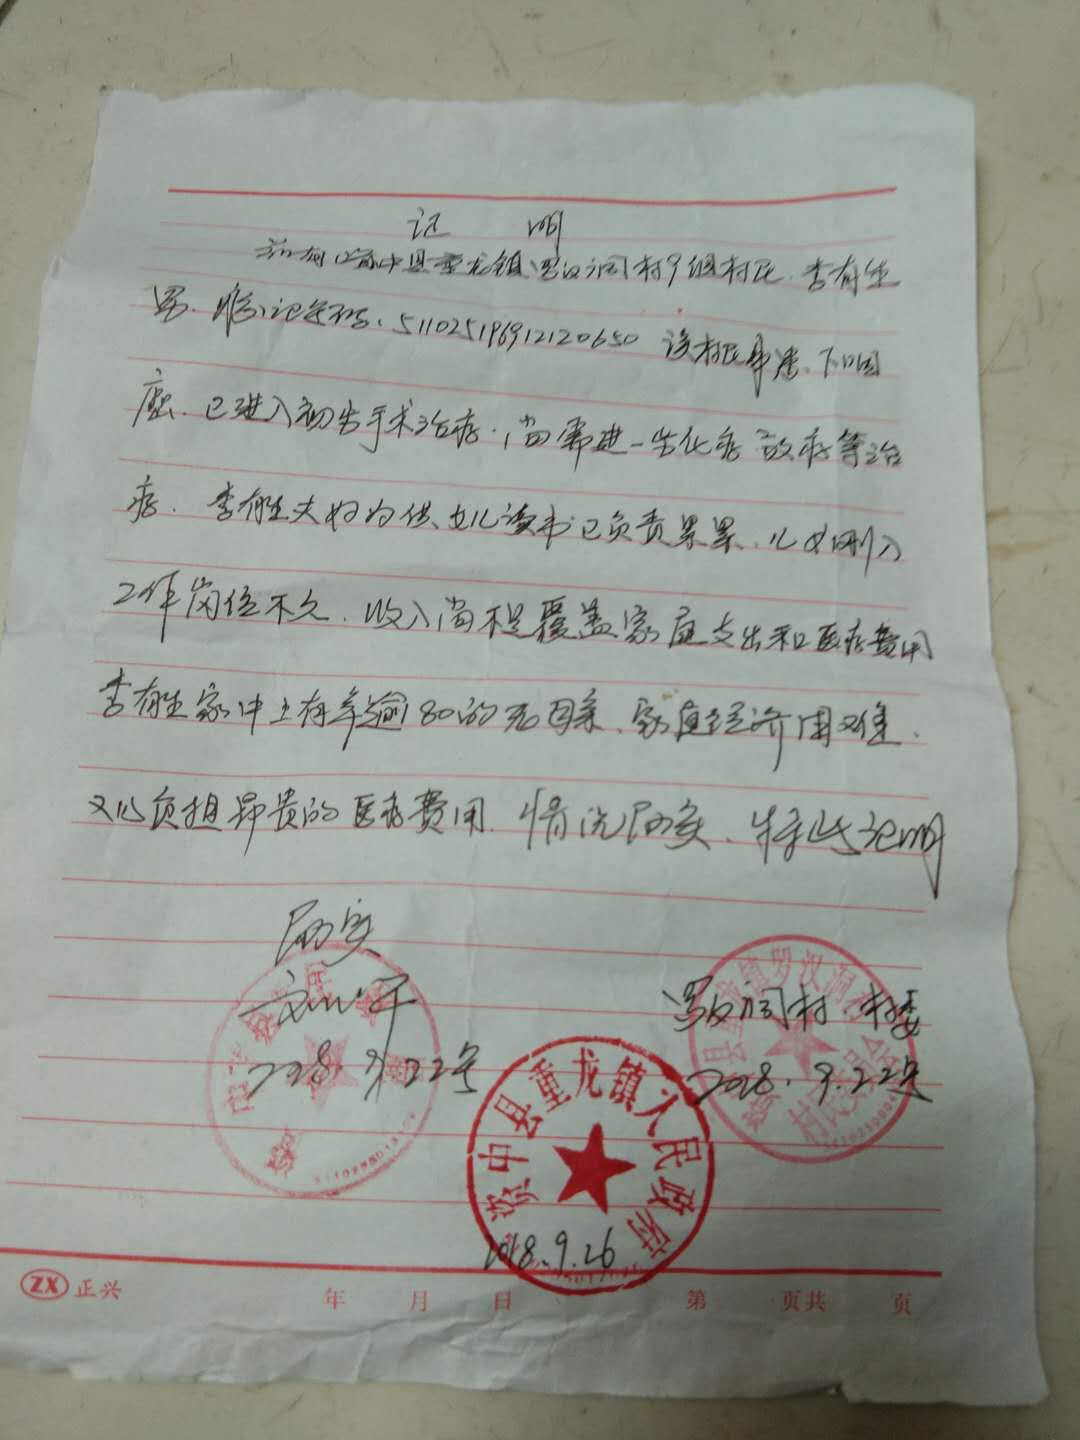 证 明
兹有资中县重龙镇罗汉洞村9组村民 李有生
男. 身份证号码: 511025196912120650 该村民身患
已进入初步手术治疗. 尚需进一步化疗放疗等治
疗. 李有生夫妇为供女儿读书已负责累累. 儿女刚入
工作岗位不久. 收入尚不足覆盖家庭支出和医疗费用
李有生家中上有年逾80的老母亲. 家庭经济困难.
无心负担昂贵的医疗费用. 情况属实. 特此证明
属实
2018.9.22号
罗汉洞村 村委
2018.9.22号
资中县重龙镇人民政府
2018.9.26
ZX 正兴
年 月 日 第 页共 页